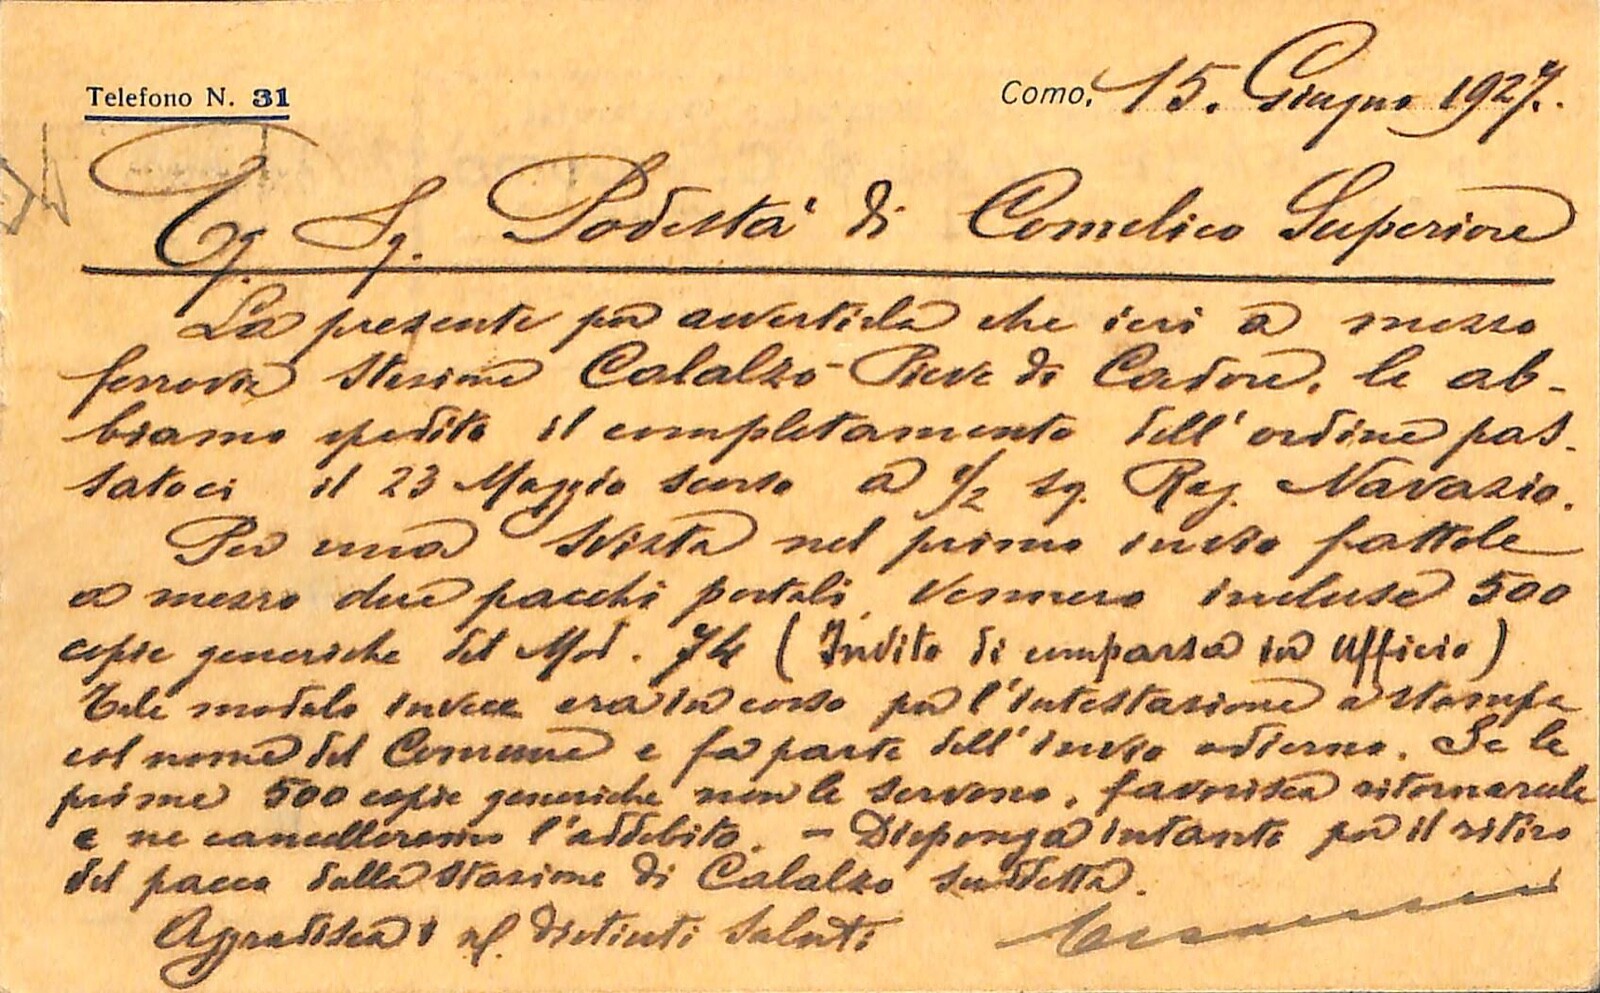 Telefono N. 31
Como, 15. Giugno 1927.
Eg. Sg. Podestà di Comelico Superiore
La presente per avvertirla che ieri a mezzo
ferrovia stazione Calalzo-Pieve di Cadore, le ab-
biamo spedito il completamento dell'ordine pas-
satoci il 23 Maggio scorso a 1/2 sg. Rag. Navasio.
Per una svista nel primo invio fattole
a mezzo due pacchi postali, vennero incluse 500
copie generiche del Mod. 74 (Invito di comparsa in Ufficio)
Tale modulo invece era in corso per l'intestazione a stampa
col nome del Comune e fa parte dell'invio odierno. Se le
prime 500 copie generiche non le servono, favorisca ritornarcele
e ne cancelleremo l'addebito. - Disponga intanto per il ritiro
del pacco dalla stazione di Calalzo suddetta.
Aggradisca i ns/ distinti saluti